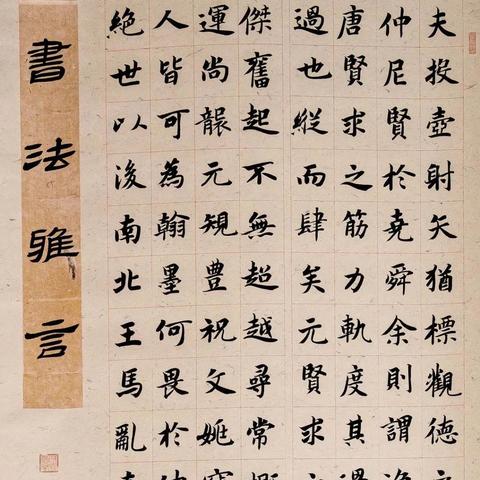 夫投壺射矢猶標觀德之
仲尼賢於堯舜余則謂
唐賢求之筋力軌度其過
過也縱而肆矣元賢求
傑奮起不無超越尋常
運尚襲元規豐祝文姚竊
人皆可為翰墨何畏於
絕世以後南北王馬亂
書法雅言